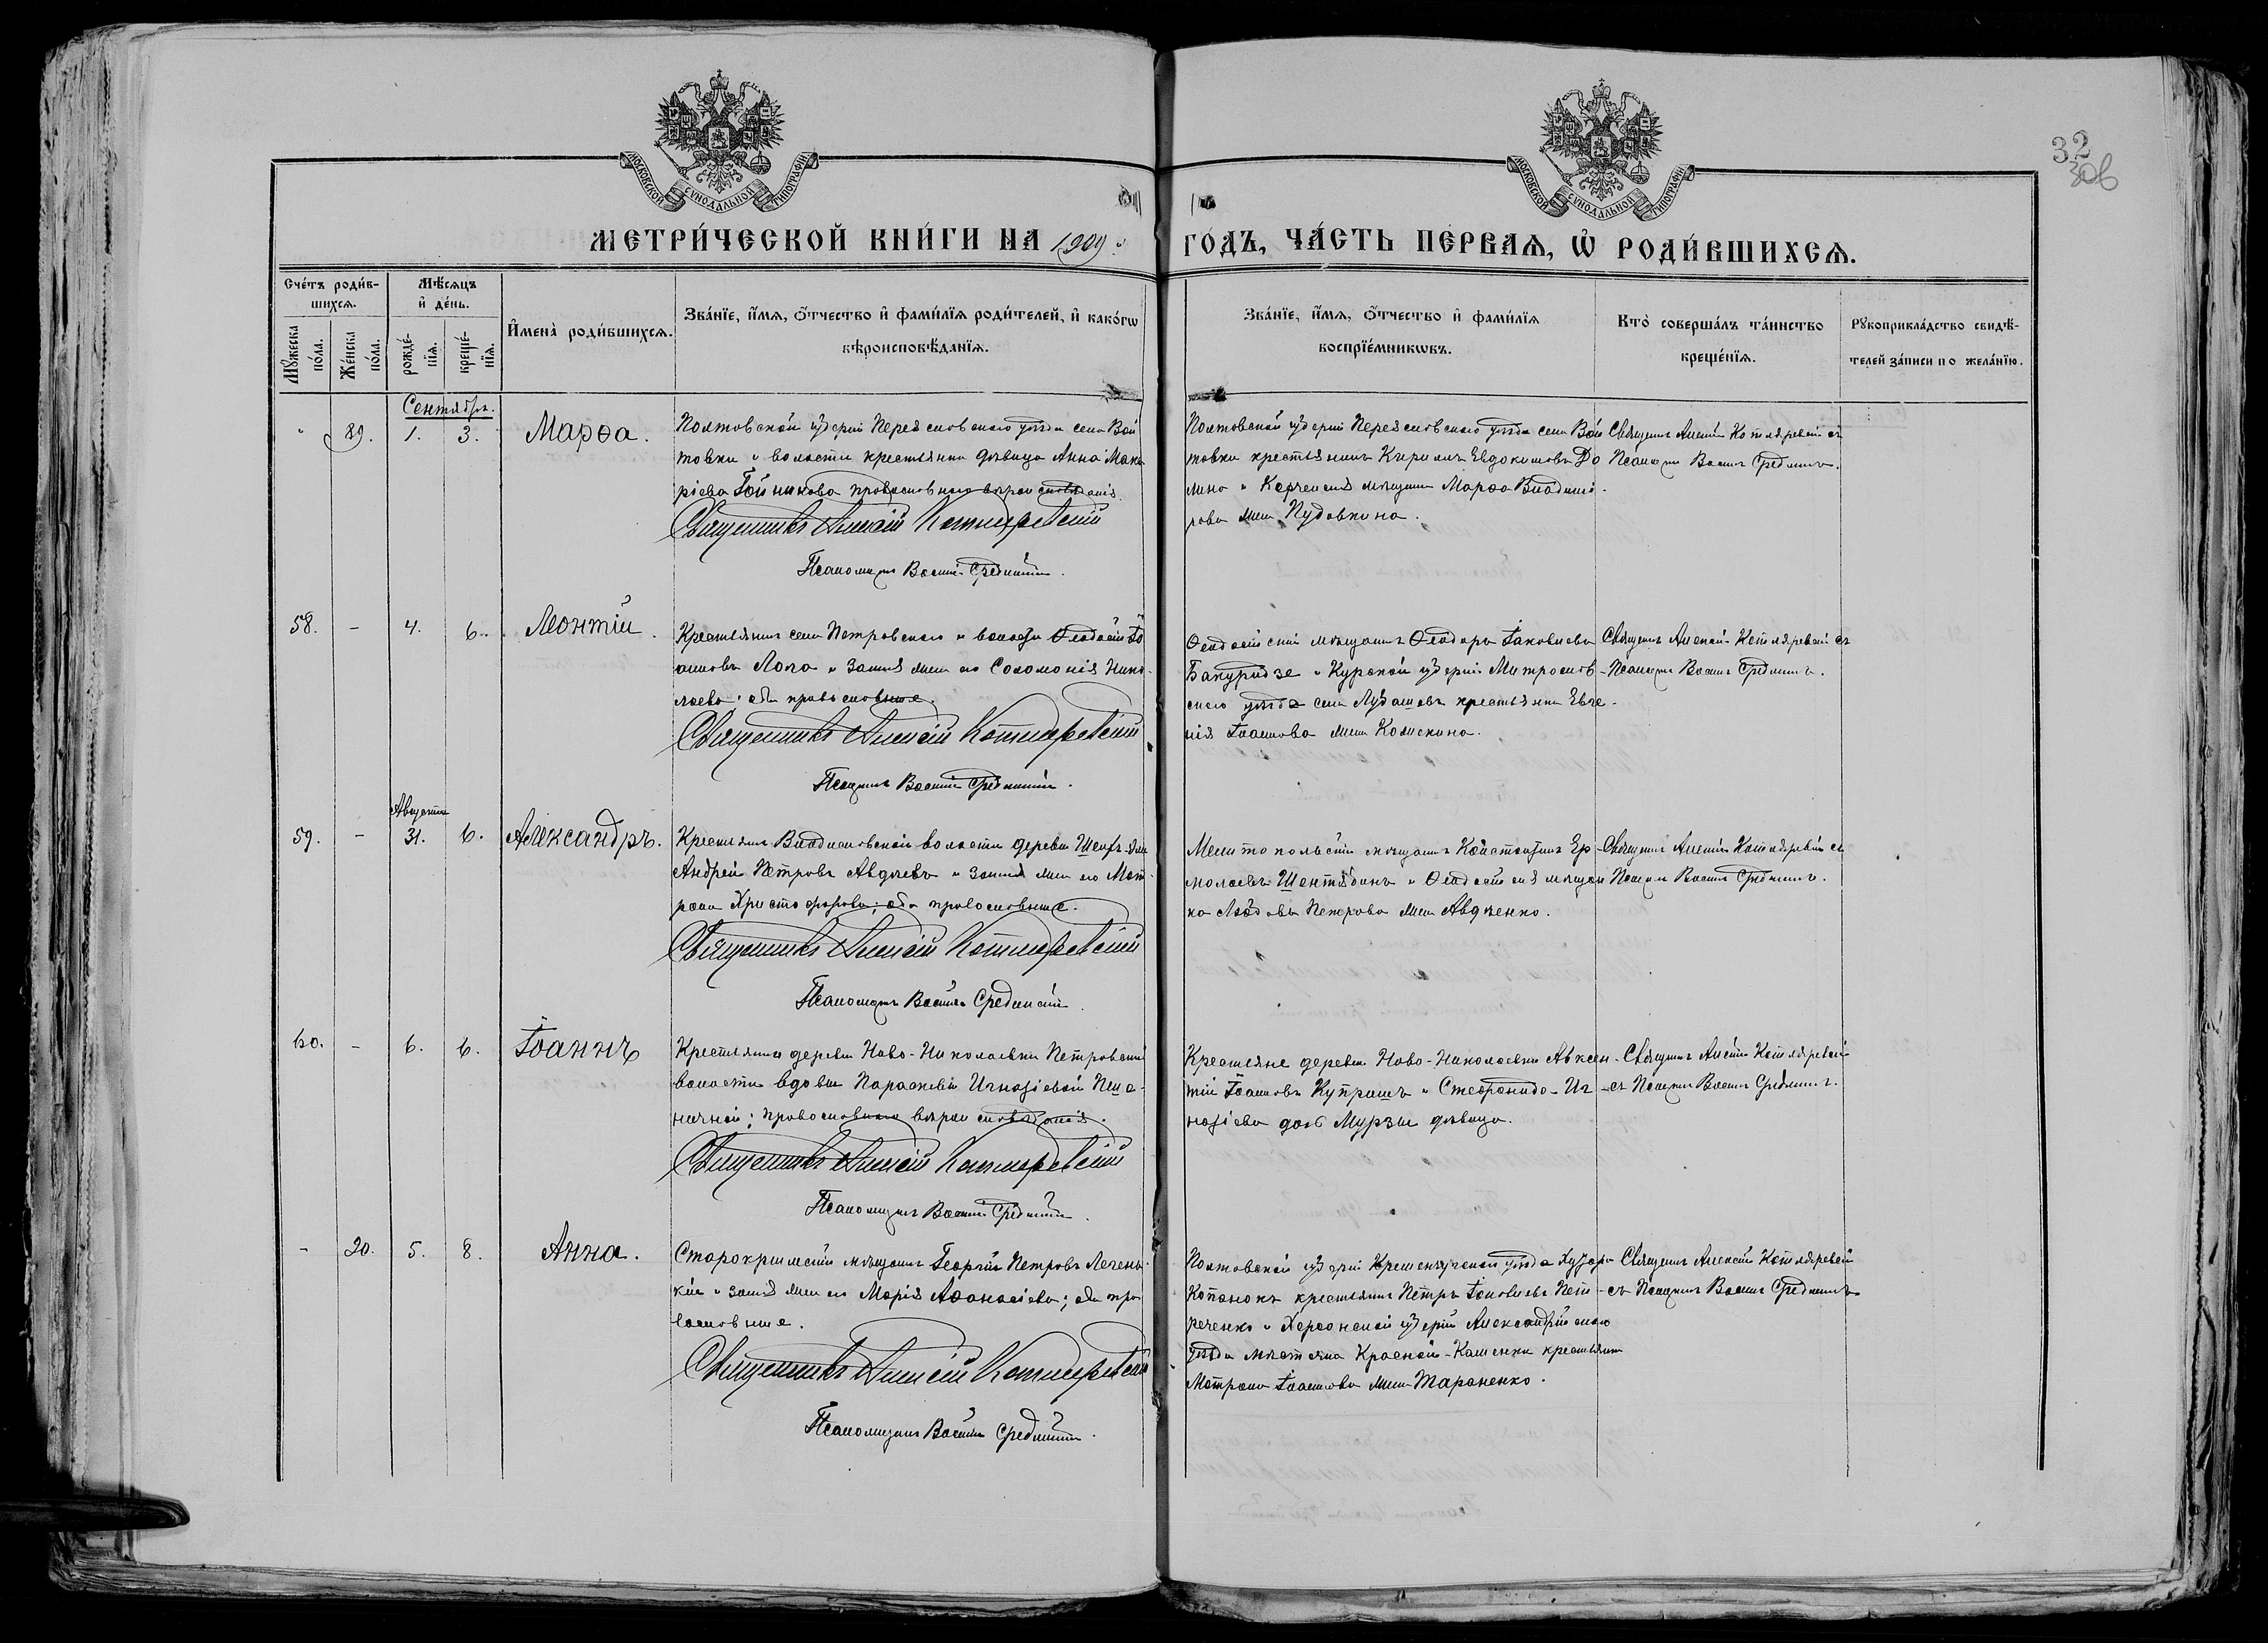 МОСКОВСКОЙ СѴНОДАЛЬНОЙ ТИПОГРАФІИ
МОСКОВСКОЙ СѴНОДАЛЬНОЙ ТИПОГРАФІИ
32
306
МЕТРИ́ЧЕСКОЙ КНИ́ГИ НА 1909
ГО́ДЪ, ЧА́СТЬ ПЕ́РВАѦ, Ѡ҆ РОДИ́ВШИХСѦ.
Сче́тъ роди́в-
шихсѧ.
Мѣ́сѧцъ
и҆ де́нь.
Мꙋ́жеска
по́ла.
Же́нска
по́ла.
рожде́-
нїѧ.
креще́-
нїѧ.
И҆мена̀ роди́вшихсѧ.
Зва́нїе, и҆́мѧ, о҆́тчество и҆ фами́лїѧ роди́телей, и҆ како́гѡ
вѣроисповѣ́данїѧ.
Зва́нїе, и҆́мѧ, о҆́тчество и҆ фами́лїѧ
воспрїе́мникѡвъ.
Кто̀ соверша́лъ та́инство
креще́нїѧ.
Рꙋкоприкла́дство свидѣ́-
телей за́писи по жела́нїю.
Сентябрь.
89. 1. 3. Марѳа.
Полтовской губерніи Переясловскаго уѣзда села Вой
товки и волости крестьянка дѣвица Анна Мака
ріева православнаго вѣроисповѣданія.
Священникъ Алексій Котляревскій
Псаломщикъ Василій Срединскій.
Полтовской губерніи Переясловскаго уѣзда села Вой
товки крестьянинъ Кириллъ Евдокимовъ До
лина и Керченская мѣщанка Марѳа Владими
рова Пудовкина.
Священ. Алексій Котляревскій съ
Псаломщ. Васил. Срединск.
58. - 4. 6. Леонтій.
Крестьянинъ села Петровскаго и волости Ѳеодосій Іо
анновъ Лога и закон. жена его Соломонія Нико
лаева; оба православные.
Священникъ Алексій Котляревскій
Псаломщикъ Василій Срединскій.
Ѳеодосійскій мѣщанинъ Ѳеодоръ Іаковлевъ
Бакуридзе и Курской губерніи Митрослов-
скаго уѣзда села крестьянка Евге-
нія Іоаннова
Священ. Алексій Котляревскій съ
Псаломщ. Васил. Срединск.
Августа
59. - 31. 6. Александръ.
Крестьянинъ Владиславской волости деревни
Андрей Петровъ Авдѣевъ и закон. жена его Мат
рона Христофорова; оба православные.
Священникъ Алексій Котляревскій
Псаломщикъ Василій Срединскій.
Мелитопольскій мѣщанинъ Константинъ Ер-
молаевъ и Ѳеодосійская мѣщан
ка Любовь Петрова Авдѣенко.
Священ. Алексій Котляревскій съ
Псаломщ. Васил. Срединск.
60. - 6. 6. Іоаннъ
Крестьянка деревни Ново-Николаевки Петровской
волости вдова Параскевія Игнатіева
православнаго вѣроисповѣданія.
Священникъ Алексій Котляревскій
Псаломщикъ Василій Срединскій.
Крестьяне деревни Ново-Николаевки Авксен-
тій Іоанновъ Купришъ и Стефанида Иг-
натіева дочь Мурзы дѣвица.
Священ. Алексій Котляревскій
съ Псаломщ. Васил. Срединск.
- 20. 5. 8. Анна.
Старокрымскій мѣщанинъ Георгій Петровъ
и закон. жена его Марія Аѳанасіева; оба пра
вославные.
Священникъ Алексій Котляревскій
Псаломщикъ Василій Срединскій.
Полтовской губерніи Кременчугскаго уѣзда Хутора
крестьянинъ Петръ Іаковлевъ Пет
реченко и Херсонской губерніи Александрійскаго
уѣзда мѣстечка Красной-Каменки крестьянка
Матрона Іоаннова Тараненко.
Священ. Алексій Котляревскій
съ Псаломщ. Васил. Срединск.